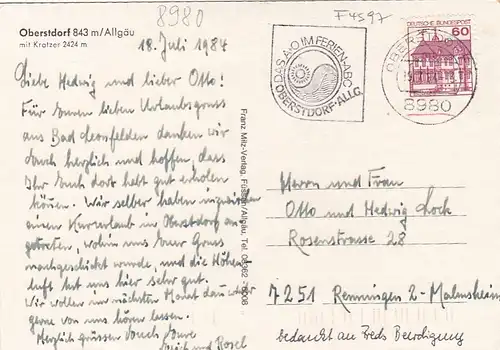 8980
F4597
Oberstdorf 843 m/Allgäu
mit Kratzer 2424 m
18. Juli 1984
Liebe Hedwig und lieber Otto!
Für Euren lieben Urlaubsgruss
aus Bad Leonfelden danken wir
Euch herzlich und hoffen, dass
Ihr Euch dort habt gut erholen
können. Wir selber haben inzwischen
einen Kurzurlaub in Oberstdorf an-
getreten, wohin uns Euer Gruss
nachgeschickt wurde, und die Höhen-
luft tut uns hier sehr gut.
Wir wollen am nächsten Monat dann
gerne von uns hören lassen.
Herzlich grüssen Euch Eure
und Rosel
Franz Milz-Verlag, Füssen/Allgäu, Tel. 08362
DAS A·O IM FERIEN-ABC
OBERSTDORF-ALLG.
OBERSTDORF
8980
DEUTSCHE BUNDESPOST
60
Herrn und Frau
Otto und Hedwig Lock
Rosenstrasse 28
7251 Renningen 2-Malmsheim
bedankt an Beerdigung